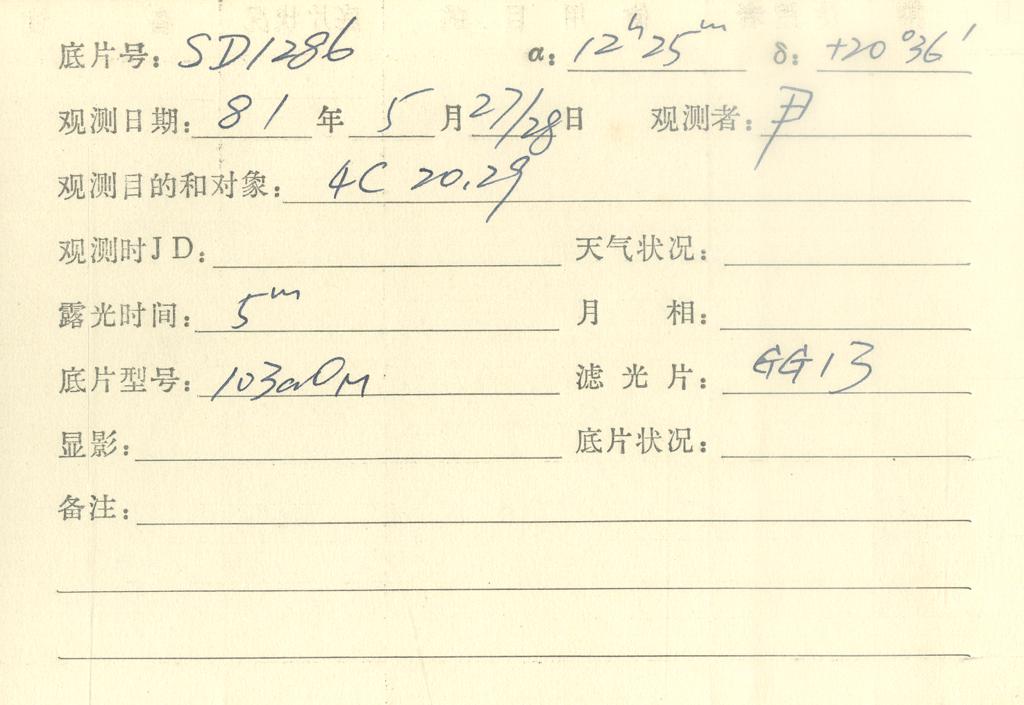 底片号: SD1286 α: 12ʰ25ᵐ δ: +20°36′
观测日期: 81 年 5 月 27/28 日 观测者: 尹
观测目的和对象: 4C 20.29
观测时JD: 天气状况:
露光时间: 5ᵐ 月 相:
底片型号: 103aOM 滤光片: GG13
显影: 底片状况:
备注: